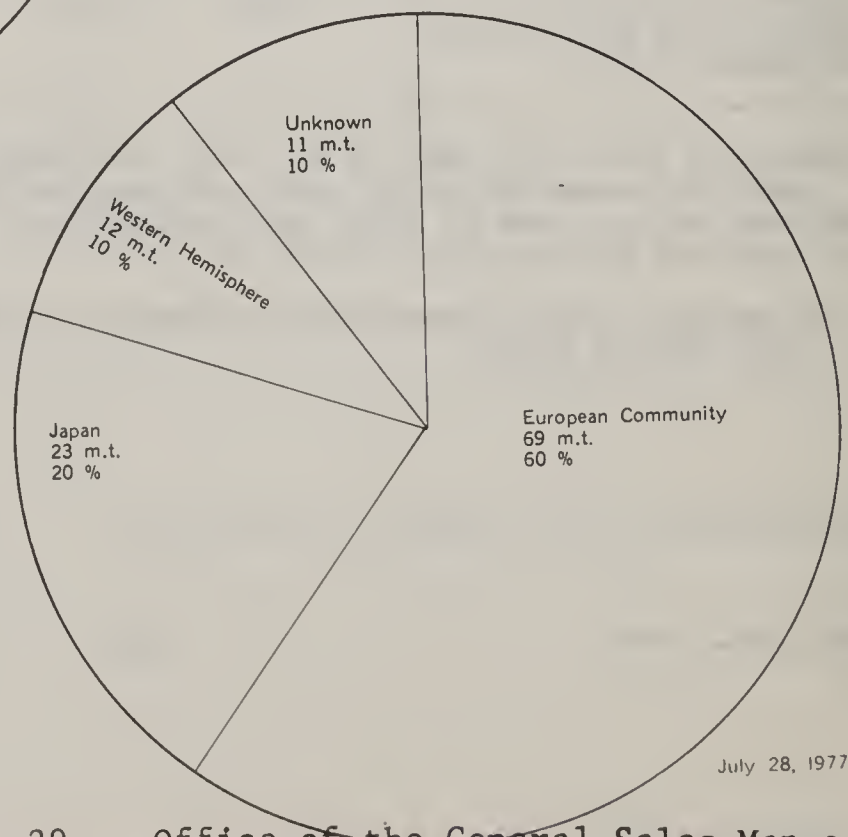 Unknown
11 m.t.
10 %
Western Hemisphere
12 m.t.
10 %
Japan
23 m.t.
20 %
European Community
69 m.t.
60 %
July 28, 1977
Office of the General Sales